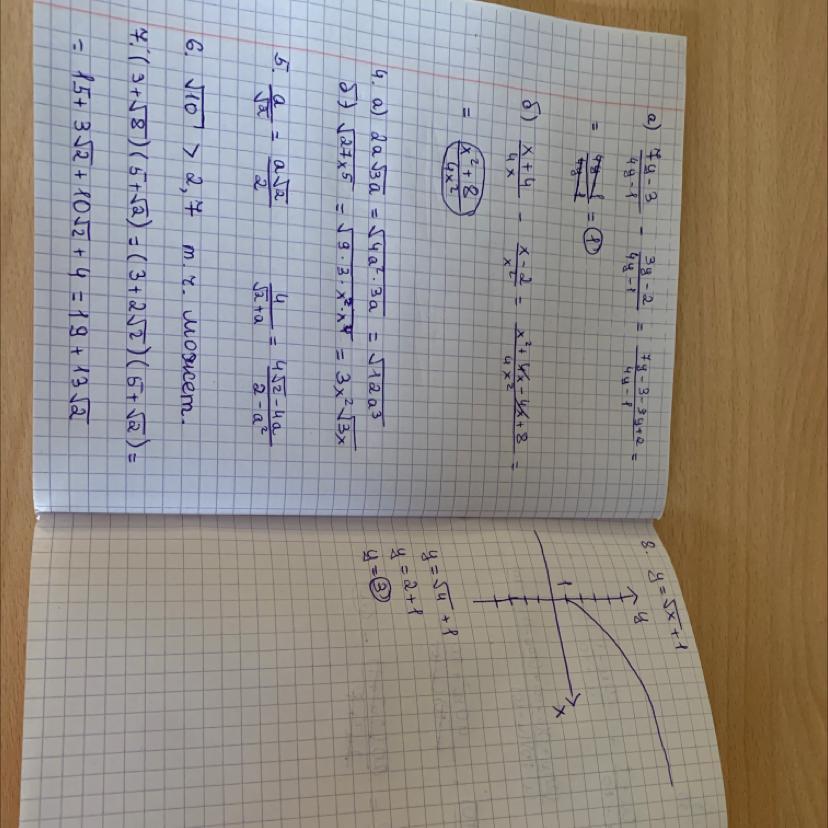 а) 7y-3/4y-1 - 3y-2/4y-1 = 7y-3-3y+2/4y-1 =
= 4y-1/4y-1 = 1
б) x+4/4x - x-2/x² = x²+4x-4x+8/4x² =
= x²+8/4x²
4. а) 2a√3a = √4a²·3a = √12a³
б) √27x⁵ = √9·3·x²·x⁴ = 3x²√3x
5. a/√2 = a√2/2 4/√2+a = 4√2-4a/2-a²
6. √10 > 2,7 т.г. может.
7. (3+√8)(5+√2)=(3+2√2)(5+√2)=
= 15+3√2+10√2+4=19+13√2
8. y=√x+1
y
1
x
y=√4+1
y=2+1
y=3